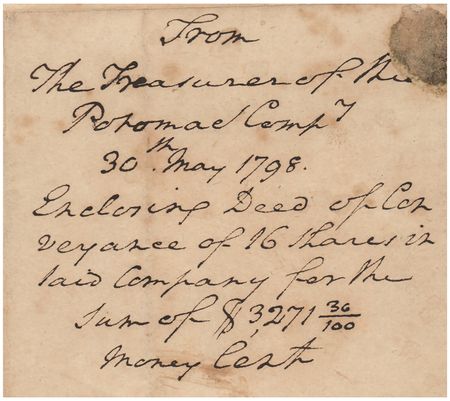 From
The Treasurer of the
Potomac Compy
30th May 1798.
Enclosing Deed of Con
veyance of 16 shares in
said Company for the
sum of $3,271 36/100
Money